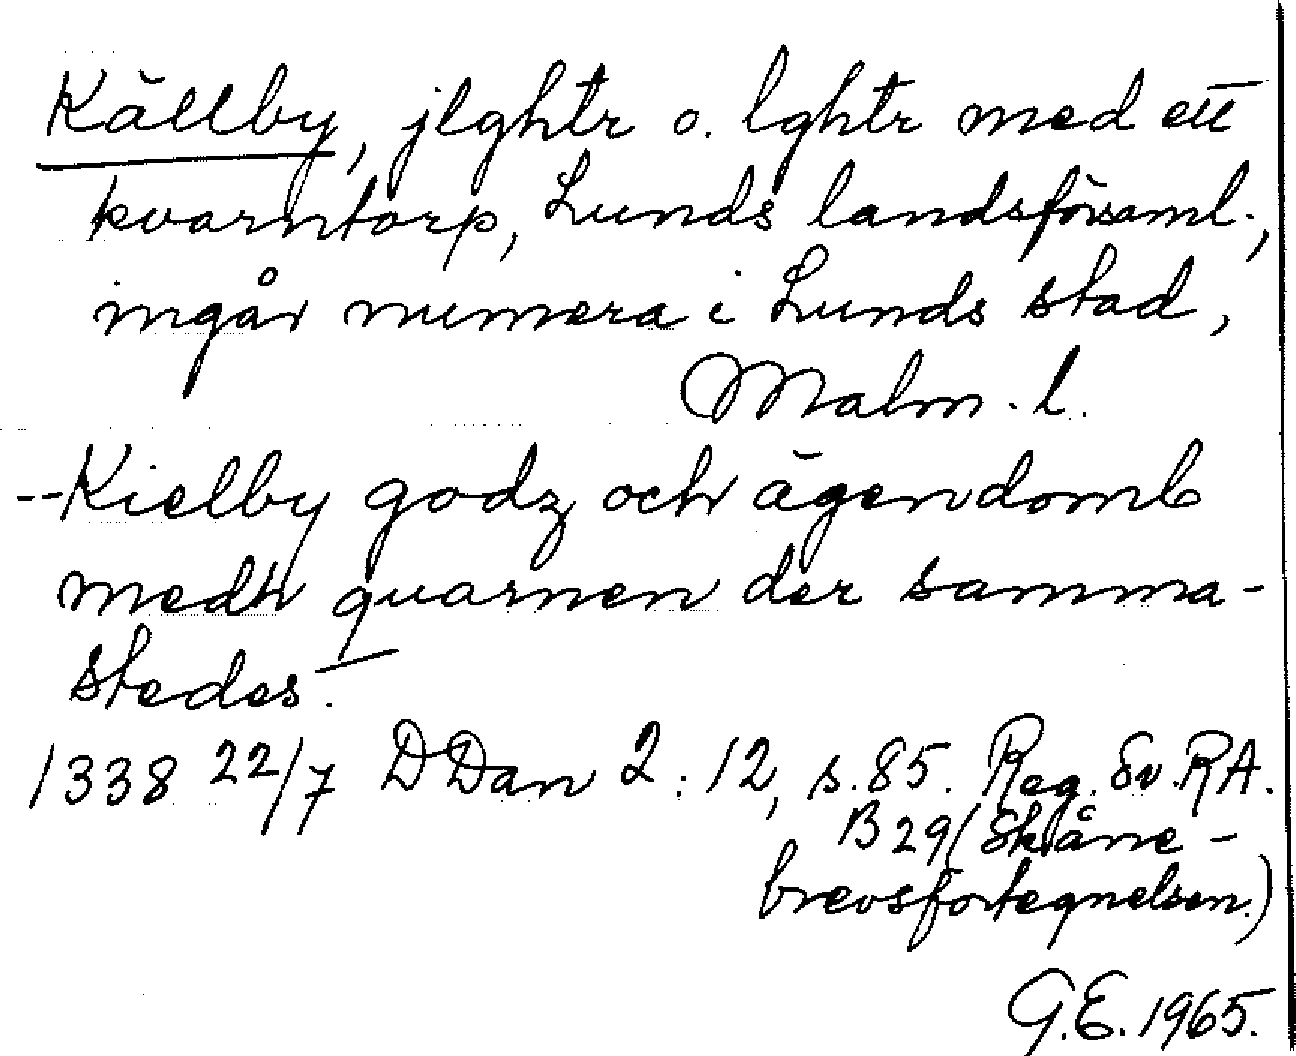 Källby, jlghtr o. lghtr med ett
kvarntorp, Lunds landsförsaml.,
ingår numera i Lunds stad,
Malm. l.
--Kielby godz och ägendomb
medh quarnen der samma-
stedes.
1338 22/7 DDan 2:12, s.85. Reg. Sv. RA.
B29 (Skåne-
brevsfortegnelsen.)
G.E. 1965.